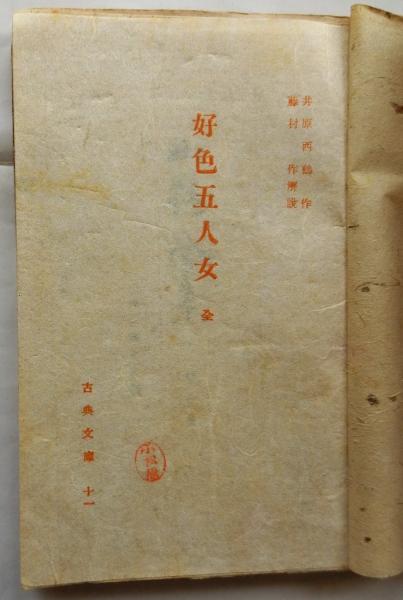 井原西鶴作
藤村作解説
好色五人女 全
古典文庫 十一